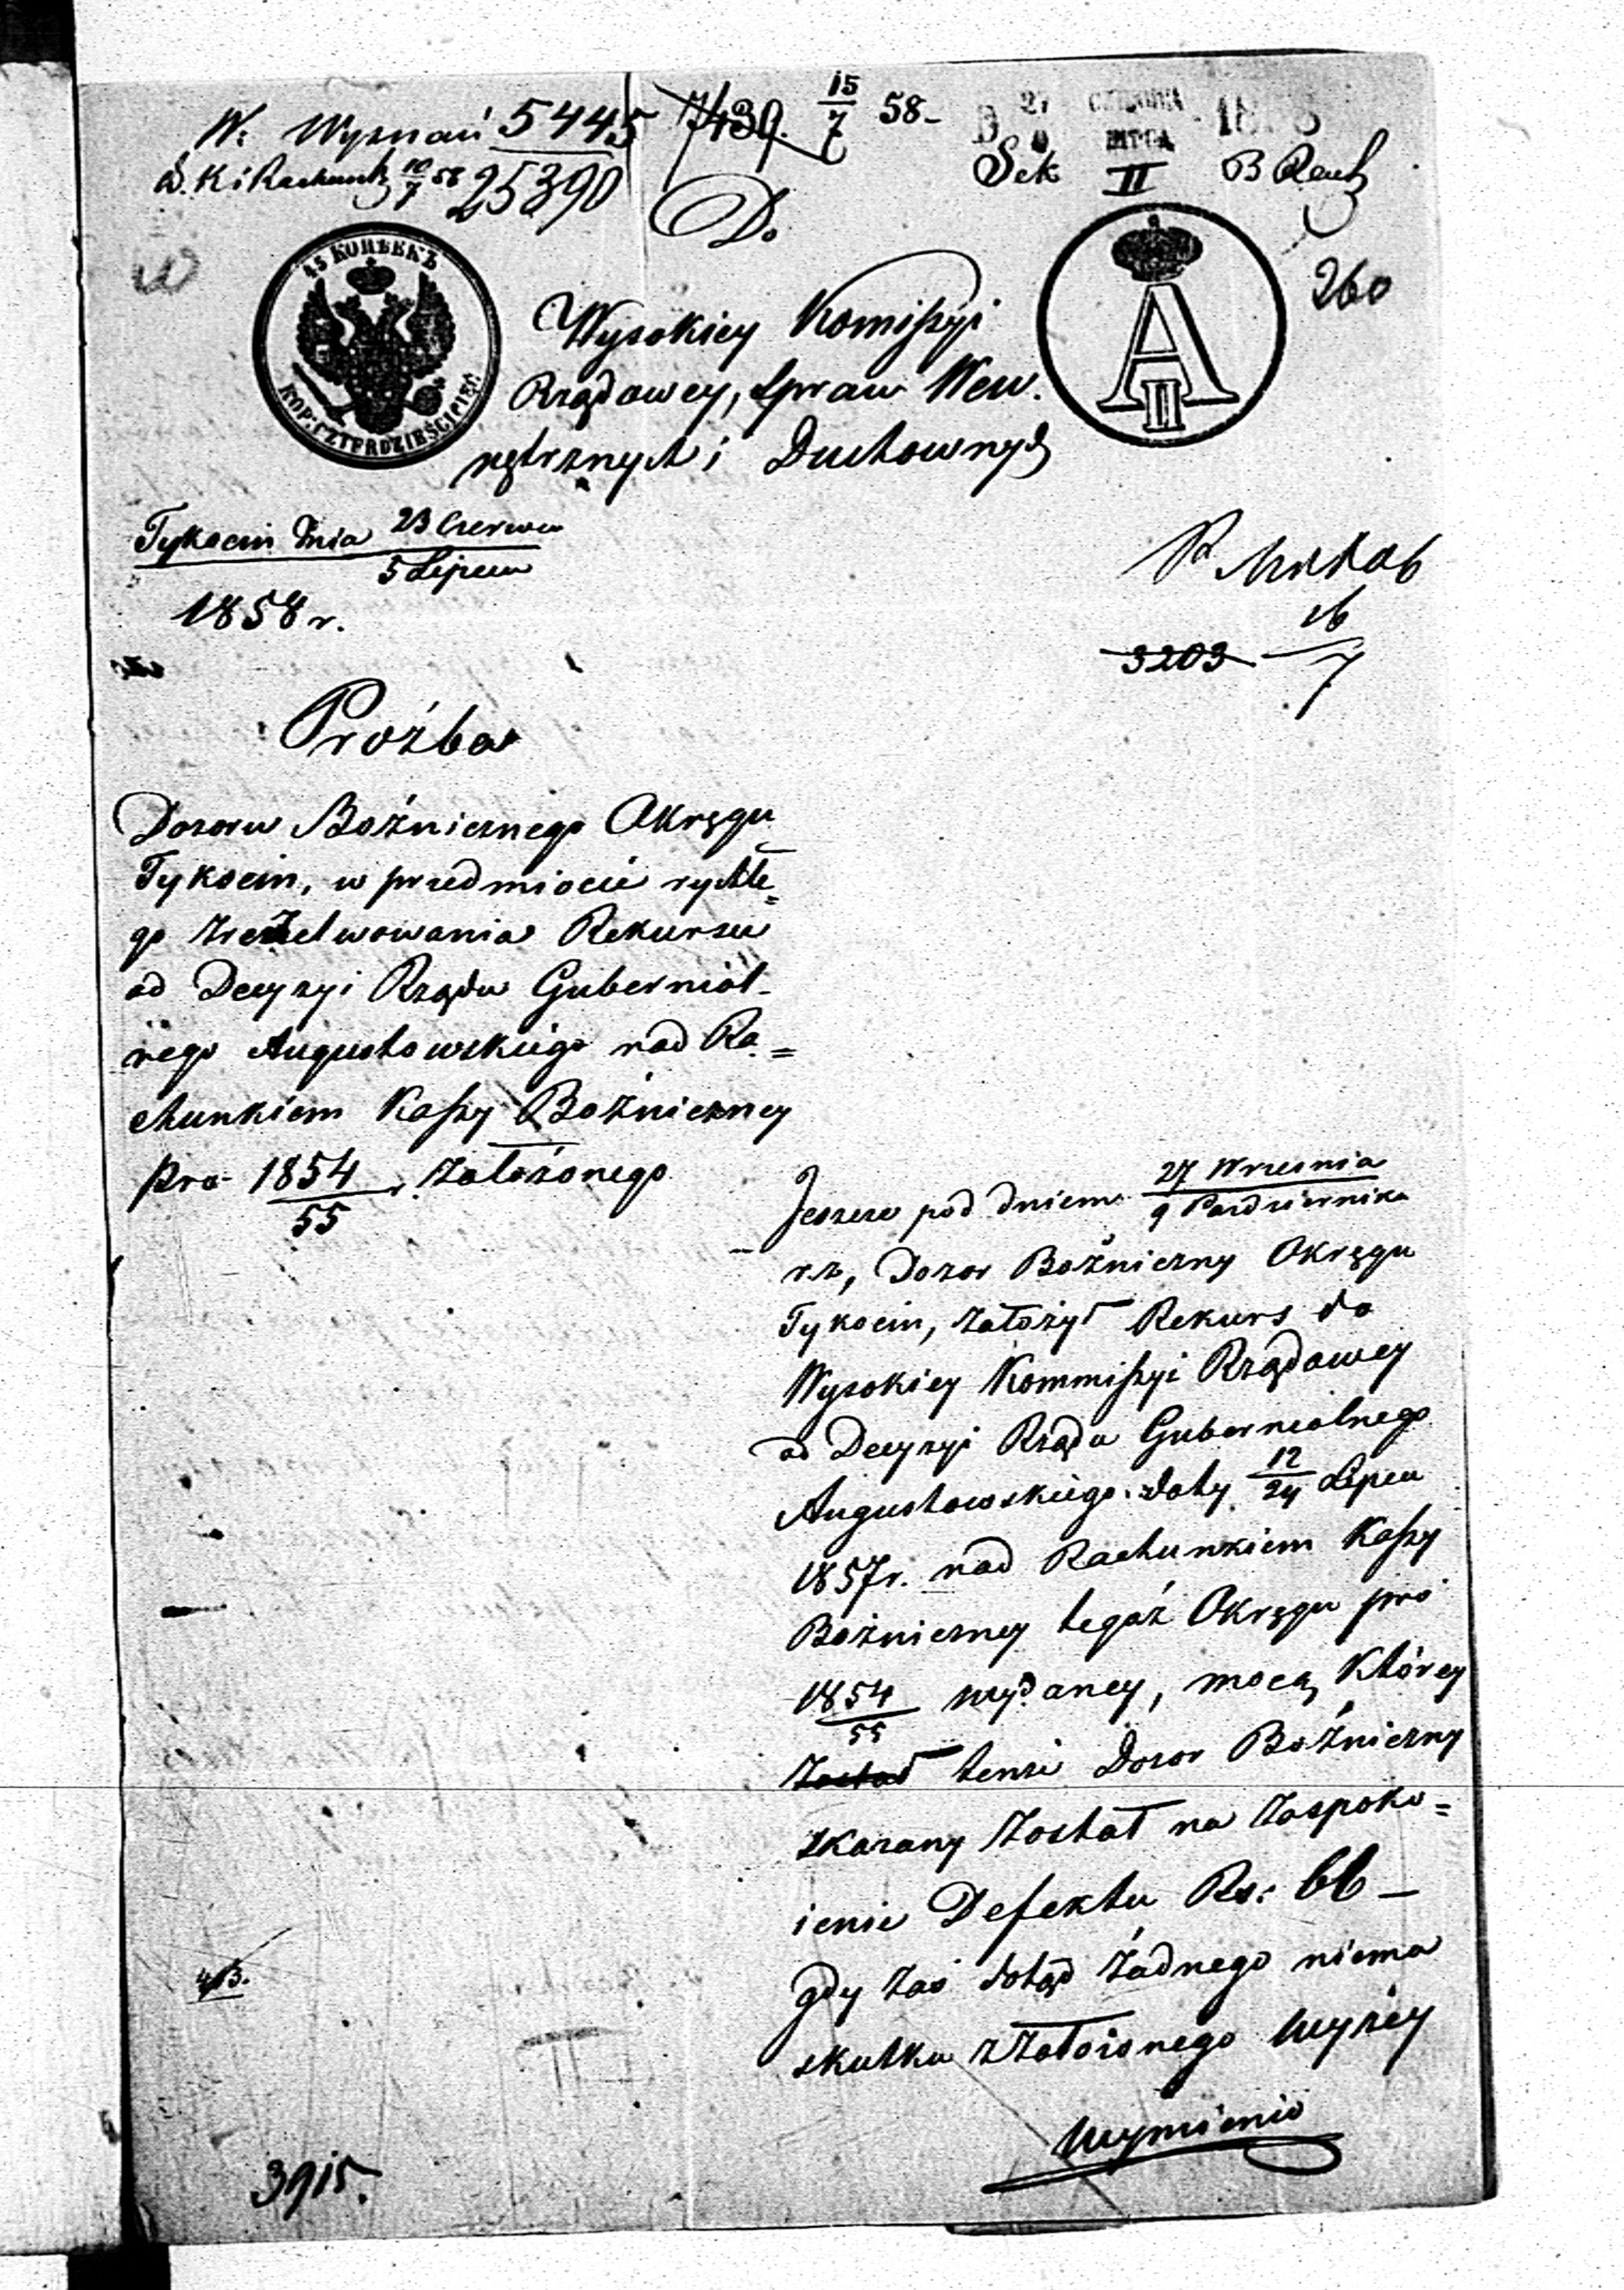 W: Wyznań 5445 7439. 15/7 58-
W. K i Rachunk 10/7 58 25390
Sek II B Rach
Do
260
45 КОПѢЕКЪ
KOP: CZTERDZIEŚCI PIĘĆ
A II
Wysokiey Komißyi
Rządowey, Spraw Wew.
nętrznych i Duchownych
Tykocin dnia 23 Czerwca / 5 Lipca
1858 r.
16/7
3203
Proźba
Dozoru Bożnicznego Okręgu
Tykocin, w przedmiocie rychłe=
go zrezelwowania Rekursu
od Decyzyi Rządu Gubernial-
nego Augustowskiego nad Ra=
chunkiem Kaßy Bożniczney
pro 1854/55 r. założonego
Jeszcze pod dniem 27 Września / 9 Pazdziernika
r.z, Dozor Bożniczny Okręgu
Tykocin, założył Rekurs do
Wysokiey Kommißyi Rządowey
od Decyzyi Rządu Gubernialnego
Augustowskiego daty 12/24 Lipca
1857r. nad Rachunkiem Kaßy
Bożniczney tegoż Okręgu pro
1854/55 wydaney, mocą którey
został tenże Dozor Bożniczny
skazany został na zaspoko=
ienie Defektu Rs: 66 –
gdy zaś dotąd żadnego niema
skutku z założonego wyżey
wymienio
3915.